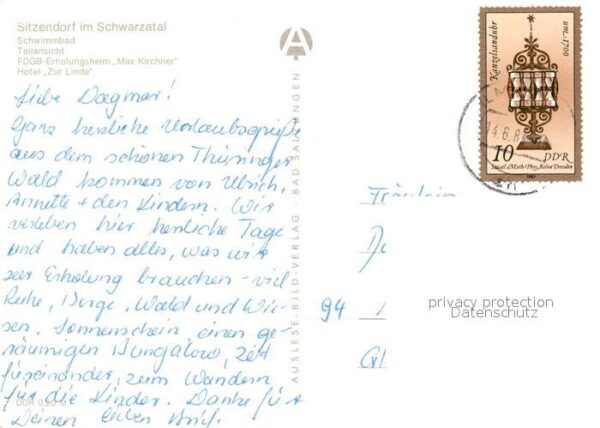 Sitzendorf im Schwarzatal
Schwimmbad
Teilansicht
FDGB-Erholungsheim „Max Kirchner"
Hotel „Zur Linde"
Liebe Dagmar!
Ganz herzliche Urlaubsgrüße
aus dem schönen Thüringer
Wald kommen von Ulrich,
Annette + den Kindern. Wir
verleben hier herrliche Tage
und haben alles, was wir
zur Erholung brauchen - viel
Ruhe, Berge, Wald und Wie-
sen, Sonnenschein, einen ge-
räumigen Bungalow, Zeit
füreinander, zum Wandern
für die Kinder. Danke für
Deinen lieben Brief.
DDR 0,20 M
AUSLESE-BILD-VERLAG · BAD SALZUNGEN
A
Kanzelsanduhr
um 1700
10 DDR
Staatl. Math.-Phys. Salon Dresden
1983
14.6.8
Fräulein
94
privacy protection
Datenschutz